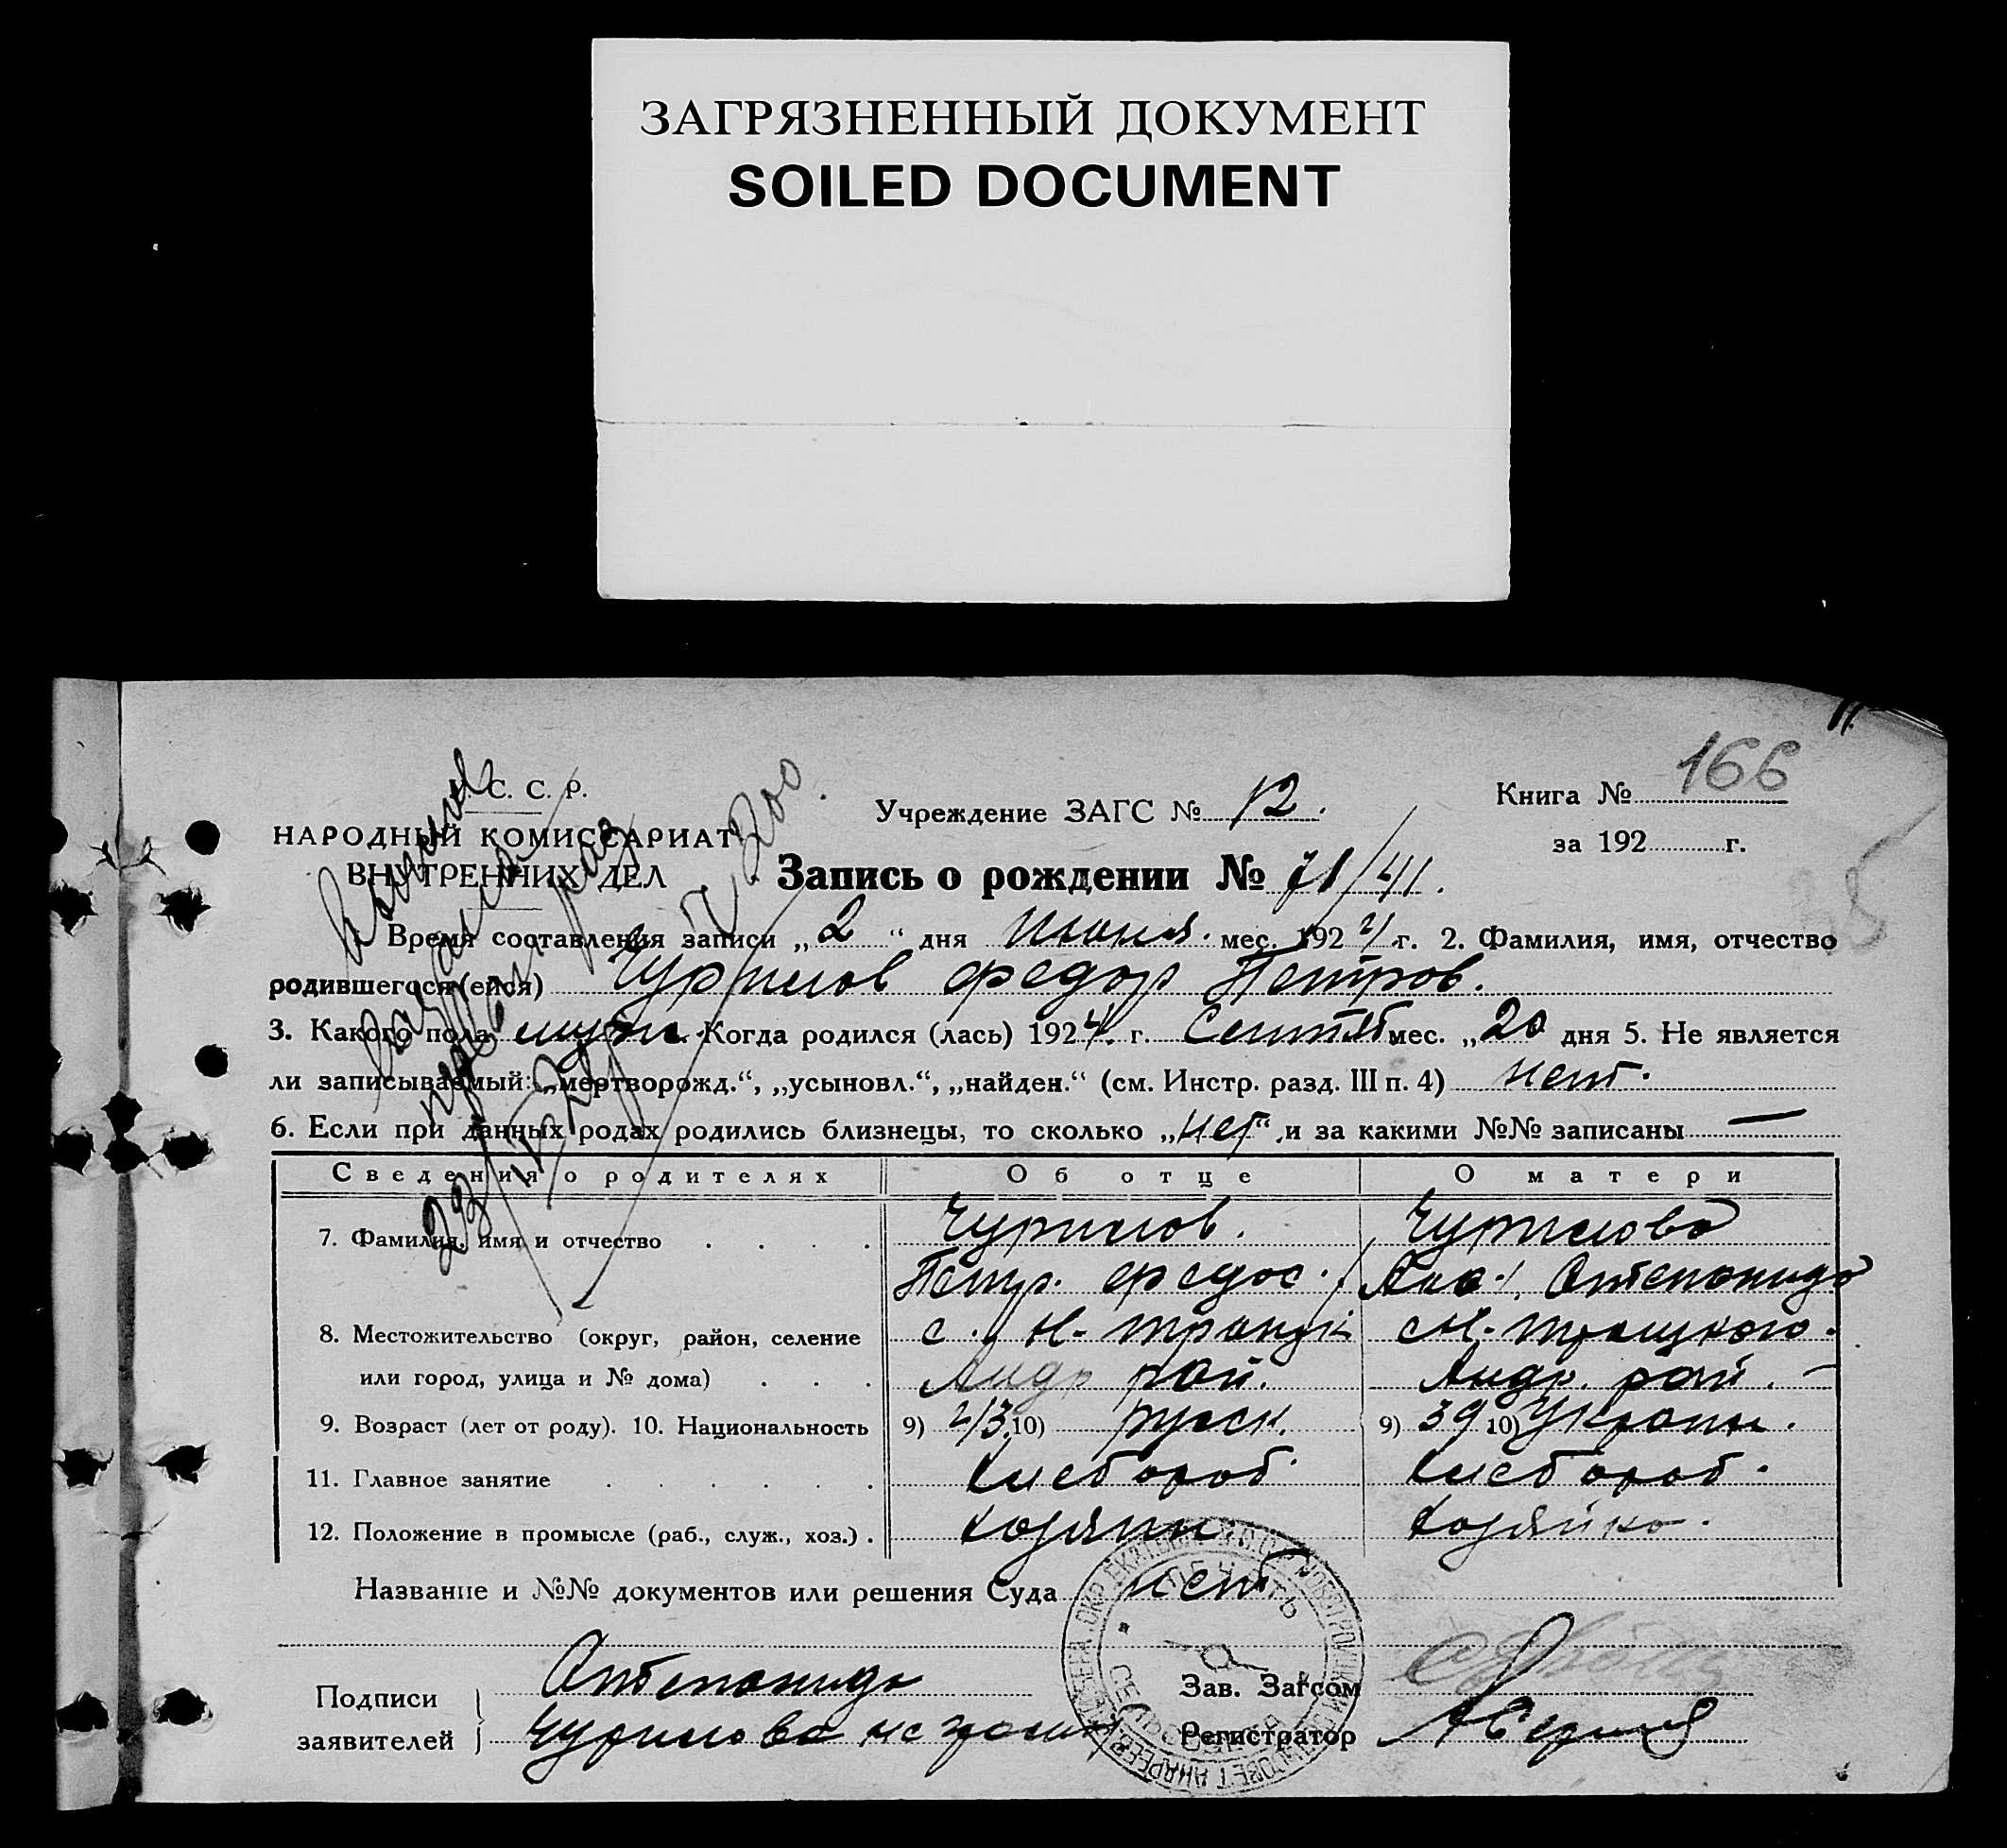 ЗАГРЯЗНЕННЫЙ ДОКУМЕНТ
SOILED DOCUMENT
С. С. Р.
НАРОДНЫЙ КОМИССАРИАТ
ВНУТРЕННИХ ДЕЛ
Учреждение ЗАГС № 12.
Книга № 166
за 192 г.
Запись о рождении № 71/41.
Время составления записи „2“ дня Июня. мес. 192 г. 2. Фамилия, имя, отчество
родившегося (ейся) Чурилов Федор Петров.
3. Какого пола муж. Когда родился (лась) 1924. г. Сентяб мес. „20 дня 5. Не является
ли записываемый: „мертворожд.“, „усыновл.“, „найден.“ (см. Инстр. разд. III п. 4) нет.
6. Если при данных родах родились близнецы, то сколько „нет“ и за какими №№ записаны —
Сведения о родителях Об отце О матери
7. Фамилия, имя и отчество Чурилов. Чурилова
Петр. Федос.
8. Местожительство (округ, район, селение с. Н-
или город, улица и № дома) Андр рай. Андр. рай.
9. Возраст (лет от роду). 10. Национальность 9) 43 10) русск. 9) 39 10) Украин.
11. Главное занятие Хлебороб. Хлебороб.
12. Положение в промысле (раб., служ., хоз.) Хозяин. Хозяйка.
Название и №№ документов или решения Суда нет
Подписи
заявителей Чурилова
Зав. Загсом
Регистратор
ПЕЧАТЬ